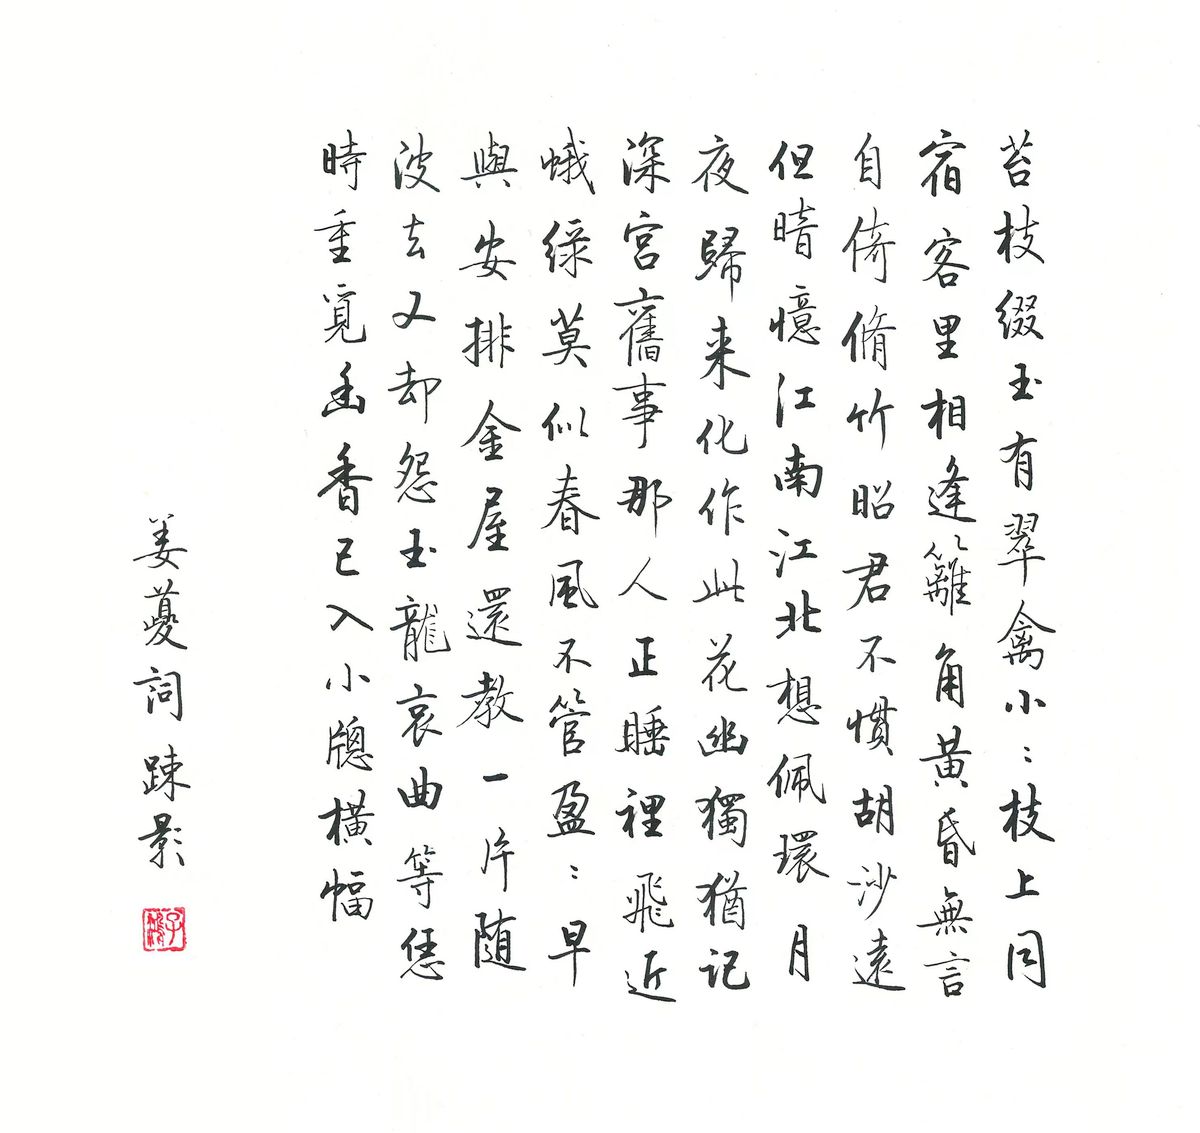 苔枝綴玉有翠禽小:枝上同
宿客里相逢籬角黃昏無言
自倚脩竹昭君不慣胡沙遠
但暗憶江南江北想佩環月
夜歸来化作此花幽獨猶記
深宮舊事那人正睡裡飛近
蛾綠莫似春風不管盈:早
與安排金屋還教一片随
波去又却怨玉龍哀曲等恁
時重覓幽香已入小牕橫幅
姜夔詞踈影